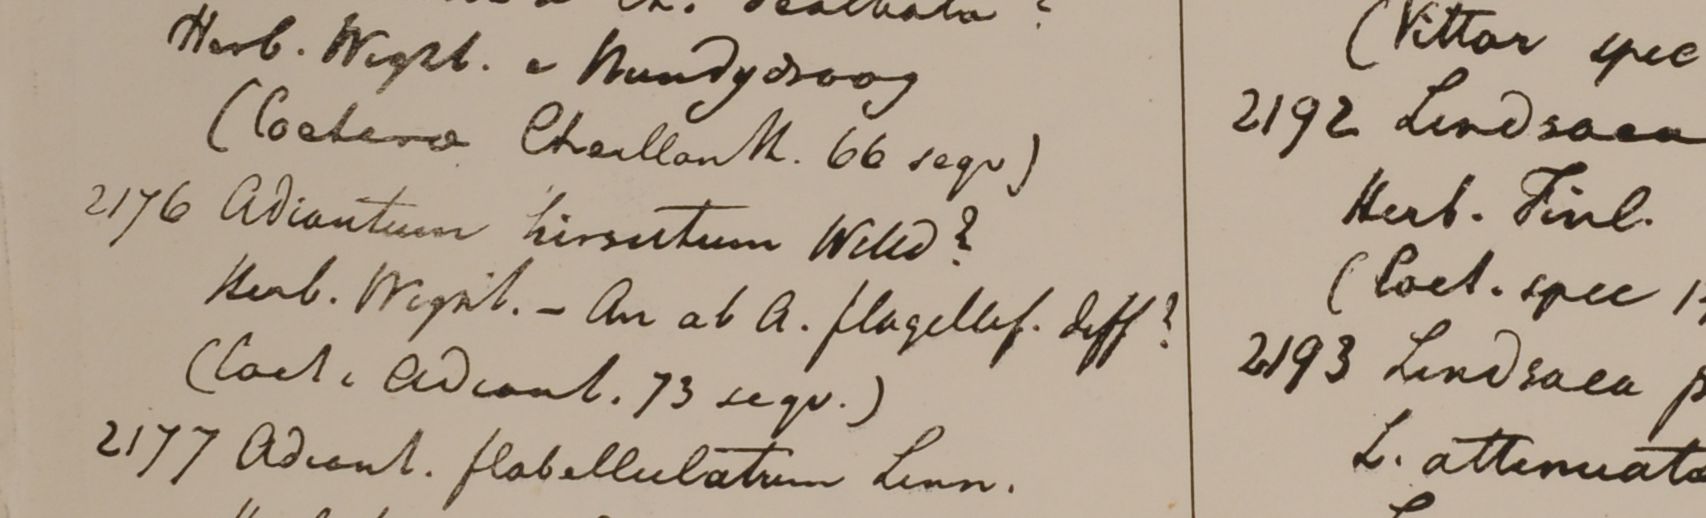 Herb. Wight. e Nundydroog
(Coetera Cheilanth. 66 sequ)
2176 Adiantum hirsutum Willd?
Herb. Wight. – An ab A. flagellif. diff?
(Coet. Adiant. 73 sequ.)
2177 Adiant. flabellulatum Linn.
(Vittar spec
2192 Lindsaea
Herb. Finl.
(Coet. spec
2193 Lindsaea
L. attenuata